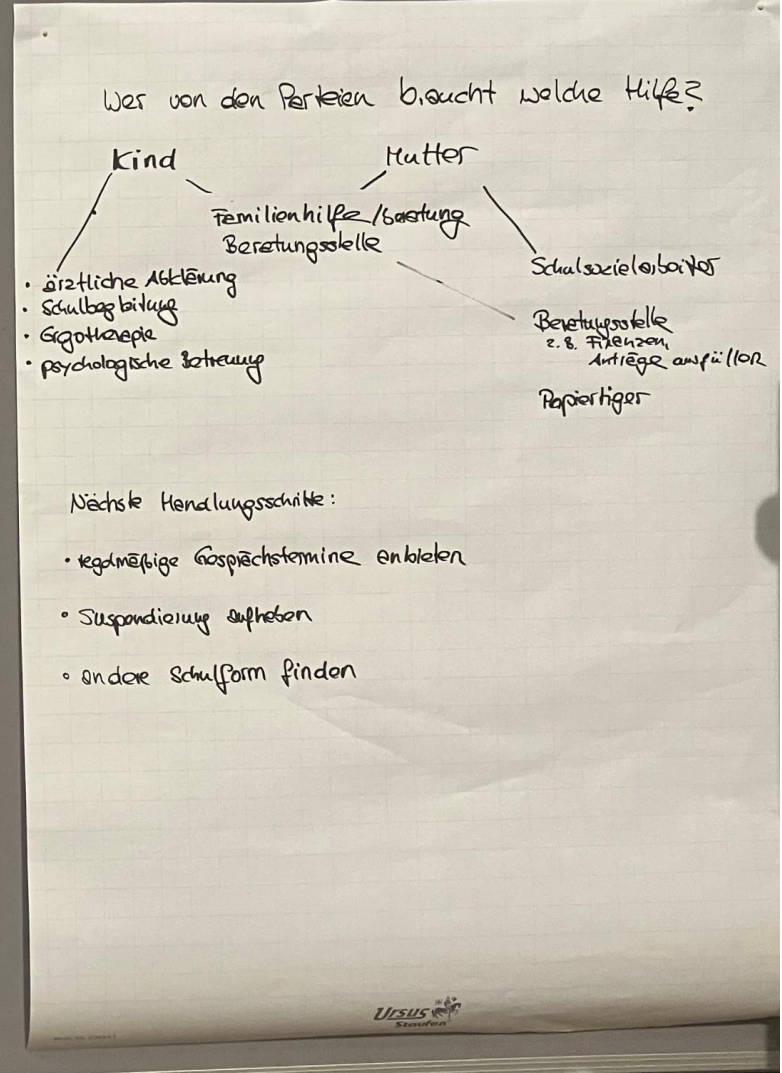 Wer von den Parteien braucht welche Hilfe?
Kind
Mutter
Familienhilfe/beratung
Beratungsstelle
• ärztliche Abklärung
• Schulbegleitung
• Ergotherapie
• psychologische Betreuung
Schulsozialarbeiter
Beratungsstelle
z.B. Finanzen,
Anträge ausfüllen
Papiertiger
Nächste Handlungsschritte:
• regelmäßige Gesprächstermine anbieten
• Suspendierung aufheben
• andere Schulform finden
Ursus
Staufen